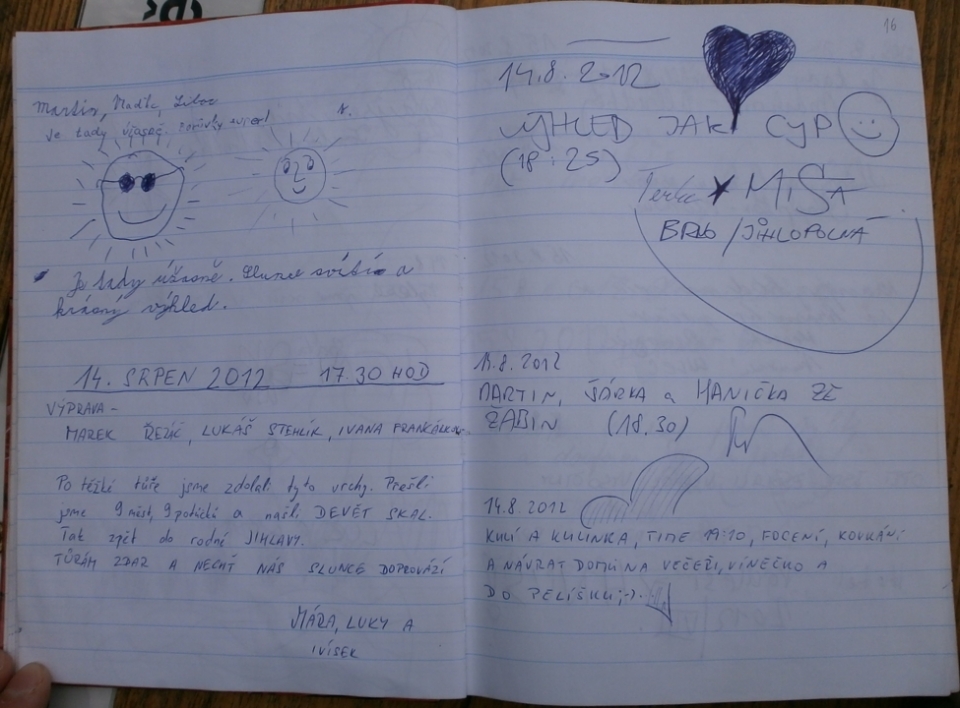 Martin, Vladík, Libor
Je tady úžasně. super!
Je tady úžasně. Slunce svítí a
krásný výhled.
14. SRPEN 2012 17.30 HOD
VÝPRAVA -
MAREK ŘEZÁČ, LUKÁŠ STEHLÍK, IVANA
Po těžké túře jsme zdolali tyto vrchy. Přešli
jsme 9 měst, 9 potůčků a našli DEVĚT SKAL.
Tak zpět do rodné JIHLAVY.
TŮRÁM ZDAR A NECHŤ NÁS SLUNCE DOPROVÁZÍ
MÁRA, LUKY A
IVÍSEK
16
14.8.2012
VÝHLED JAK CYP
(18:25)
Terka MIŠA
BRNO /
14.8.2012
MARTIN, ŠÁRKA a HANIČKA ZE
ŽABIN (18.30)
14.8.2012
KULÍ A KULINKA, TIME 19:10, FOCENÍ, KOUKÁNÍ
A NÁVRAT DOMŮ NA VEČEŘI, VÍNEČKO A
DO PELÍŠKU ;-).